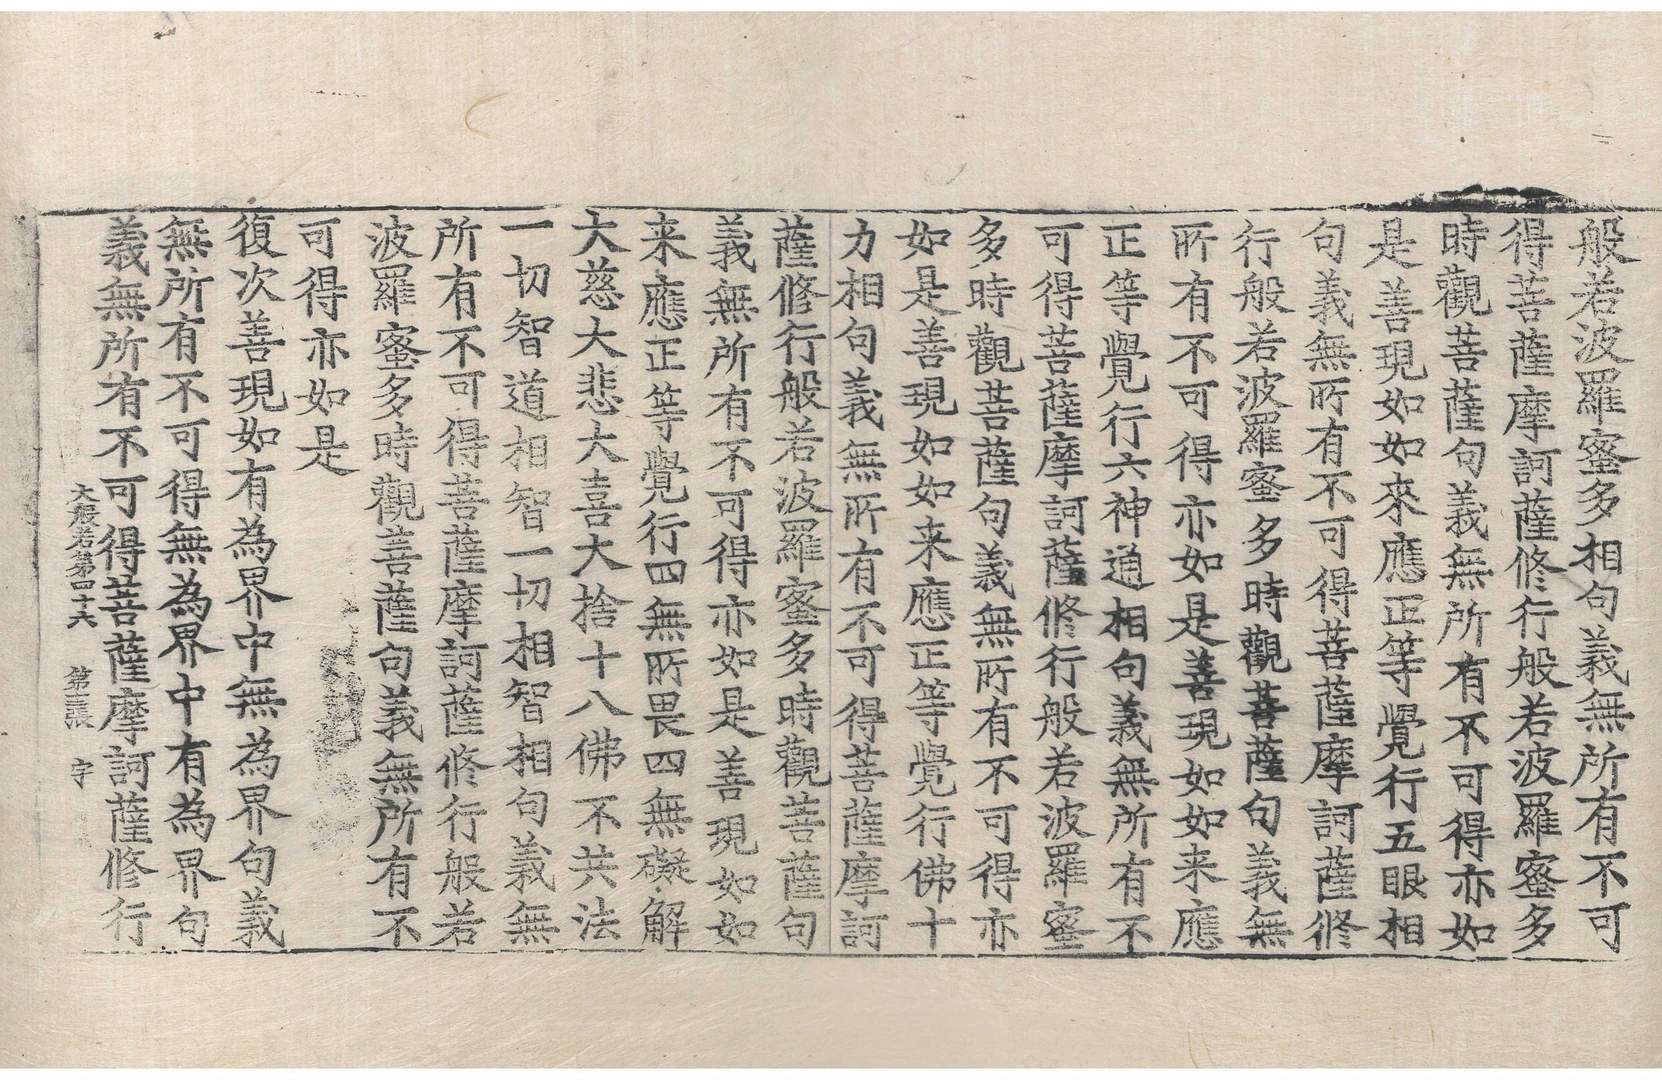 般若波羅蜜多相句義無所有不可
得菩薩摩訶薩修行般若波羅蜜多
時觀菩薩句義無所有不可得亦如
是善現如如來應正等覺行五眼相
句義無所有不可得菩薩摩訶薩修
行般若波羅蜜多時觀菩薩句義無
所有不可得亦如是善現如如来應
正等覺行六神通相句義無所有不
可得菩薩摩訶薩修行般若波羅蜜
多時觀菩薩句義無所有不可得亦
如是善現如如来應正等覺行佛十
力相句義無所有不可得菩薩摩訶
薩修行般若波羅蜜多時觀菩薩句
義無所有不可得亦如是善現如如
来應正等覺行四無所畏四無礙解
大慈大悲大喜大捨十八佛不共法
一切智道相智一切相智相句義無
所有不可得菩薩摩訶薩修行般若
波羅蜜多時觀菩薩句義無所有不
可得亦如是
復次善現如有為界中無為界句義
無所有不可得無為界中有為界句
義無所有不可得菩薩摩訶薩修行
大般若第四十六 第三張 字